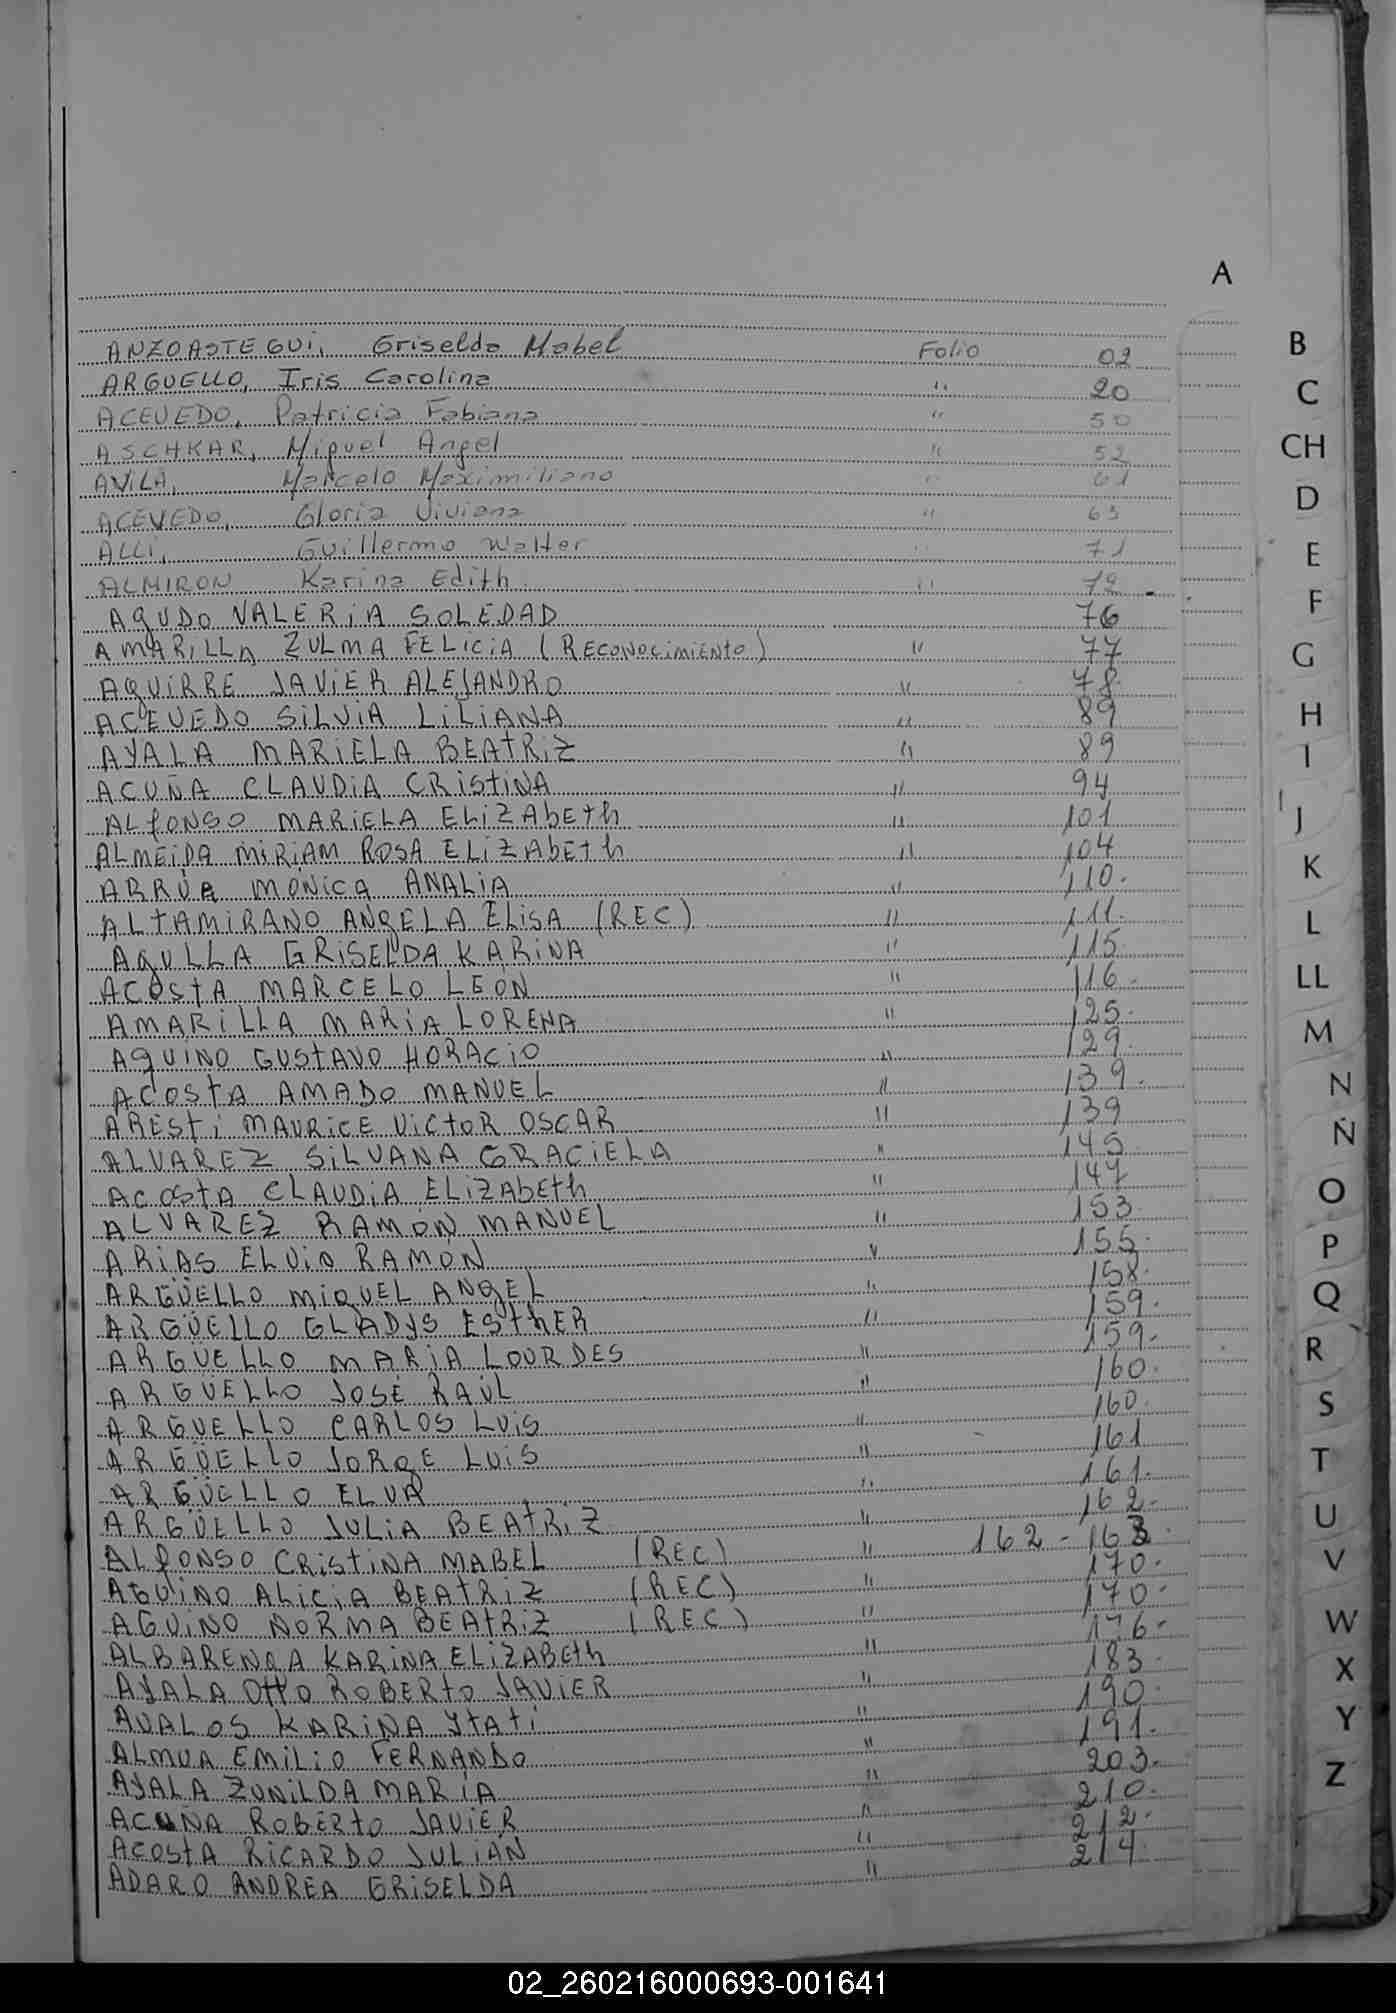 A
ANZOASTEGUI, Griselda Mabel Folio 02
ARGUELLO, Iris Carolina " 20
ACEVEDO, Patricia Fabiana " 50
ASCHKAR, Miguel Angel " 52
AVILA, Marcelo Maximiliano " 61
ACEVEDO, Gloria Viviana " 63
ALLI, Guillermo Walter " 71
ALMIRON Karina Edith " 72
AGUDO VALERIA SOLEDAD 76
AMARILLA ZULMA FELICIA (RECONOCIMIENTO) " 77
AGUIRRE JAVIER ALEJANDRO " 78
ACEVEDO SILVIA LILIANA " 89
AYALA MARIELA BEATRIZ " 89
ACUÑA CLAUDIA CRISTINA " 94
ALFONSO MARIELA ELIZABETH " 101
ALMEIDA MIRIAM ROSA ELIZABETH " 104
ARRÚA MÓNICA ANALIA " 110.
ALTAMIRANO ANGELA ELISA (REC) " 111.
AGULLA GRISELDA KARINA " 115
ACOSTA MARCELO LEÓN " 116.
AMARILLA MARIA LORENA " 125.
AQUINO GUSTAVO HORACIO " 129.
ACOSTA AMADO MANUEL " 139.
ARESTI MAURICE VICTOR OSCAR " 139
ALVAREZ SILVANA GRACIELA " 145.
ACOSTA CLAUDIA ELIZABETH " 147
ALVAREZ RAMÓN MANUEL " 153.
ARIAS ELVIO RAMÓN " 155.
ARGÜELLO MIGUEL ANGEL " 158.
ARGÜELLO GLADYS ESTHER " 159.
ARGÜELLO MARIA LOURDES " 159.
ARGÜELLO JOSÉ RAÚL " 160.
ARGÜELLO CARLOS LUIS " 160.
ARGÜELLO JORGE LUIS " 161
ARGÜELLO ELVA " 161.
ARGÜELLO JULIA BEATRIZ " 162.
ALFONSO CRISTINA MABEL (REC) " 162 - 163.
AQUINO ALICIA BEATRIZ (REC) " 170.
AQUINO NORMA BEATRIZ (REC) " 170.
ALBARENGA KARINA ELIZABETH " 176.
AYALA OTTO ROBERTO JAVIER " 183.
AVALOS KARINA YTATI " 190.
ALMUA EMILIO FERNANDO " 191.
AYALA ZUNILDA MARÍA " 203.
ACUÑA ROBERTO JAVIER " 210.
ACOSTA RICARDO JULIÁN " 212.
ADARO ANDREA GRISELDA " 214.
B
C
CH
D
E
F
G
H
I
J
K
L
LL
M
N
Ñ
O
P
Q
R
S
T
U
V
W
X
Y
Z
02_260216000693-001641